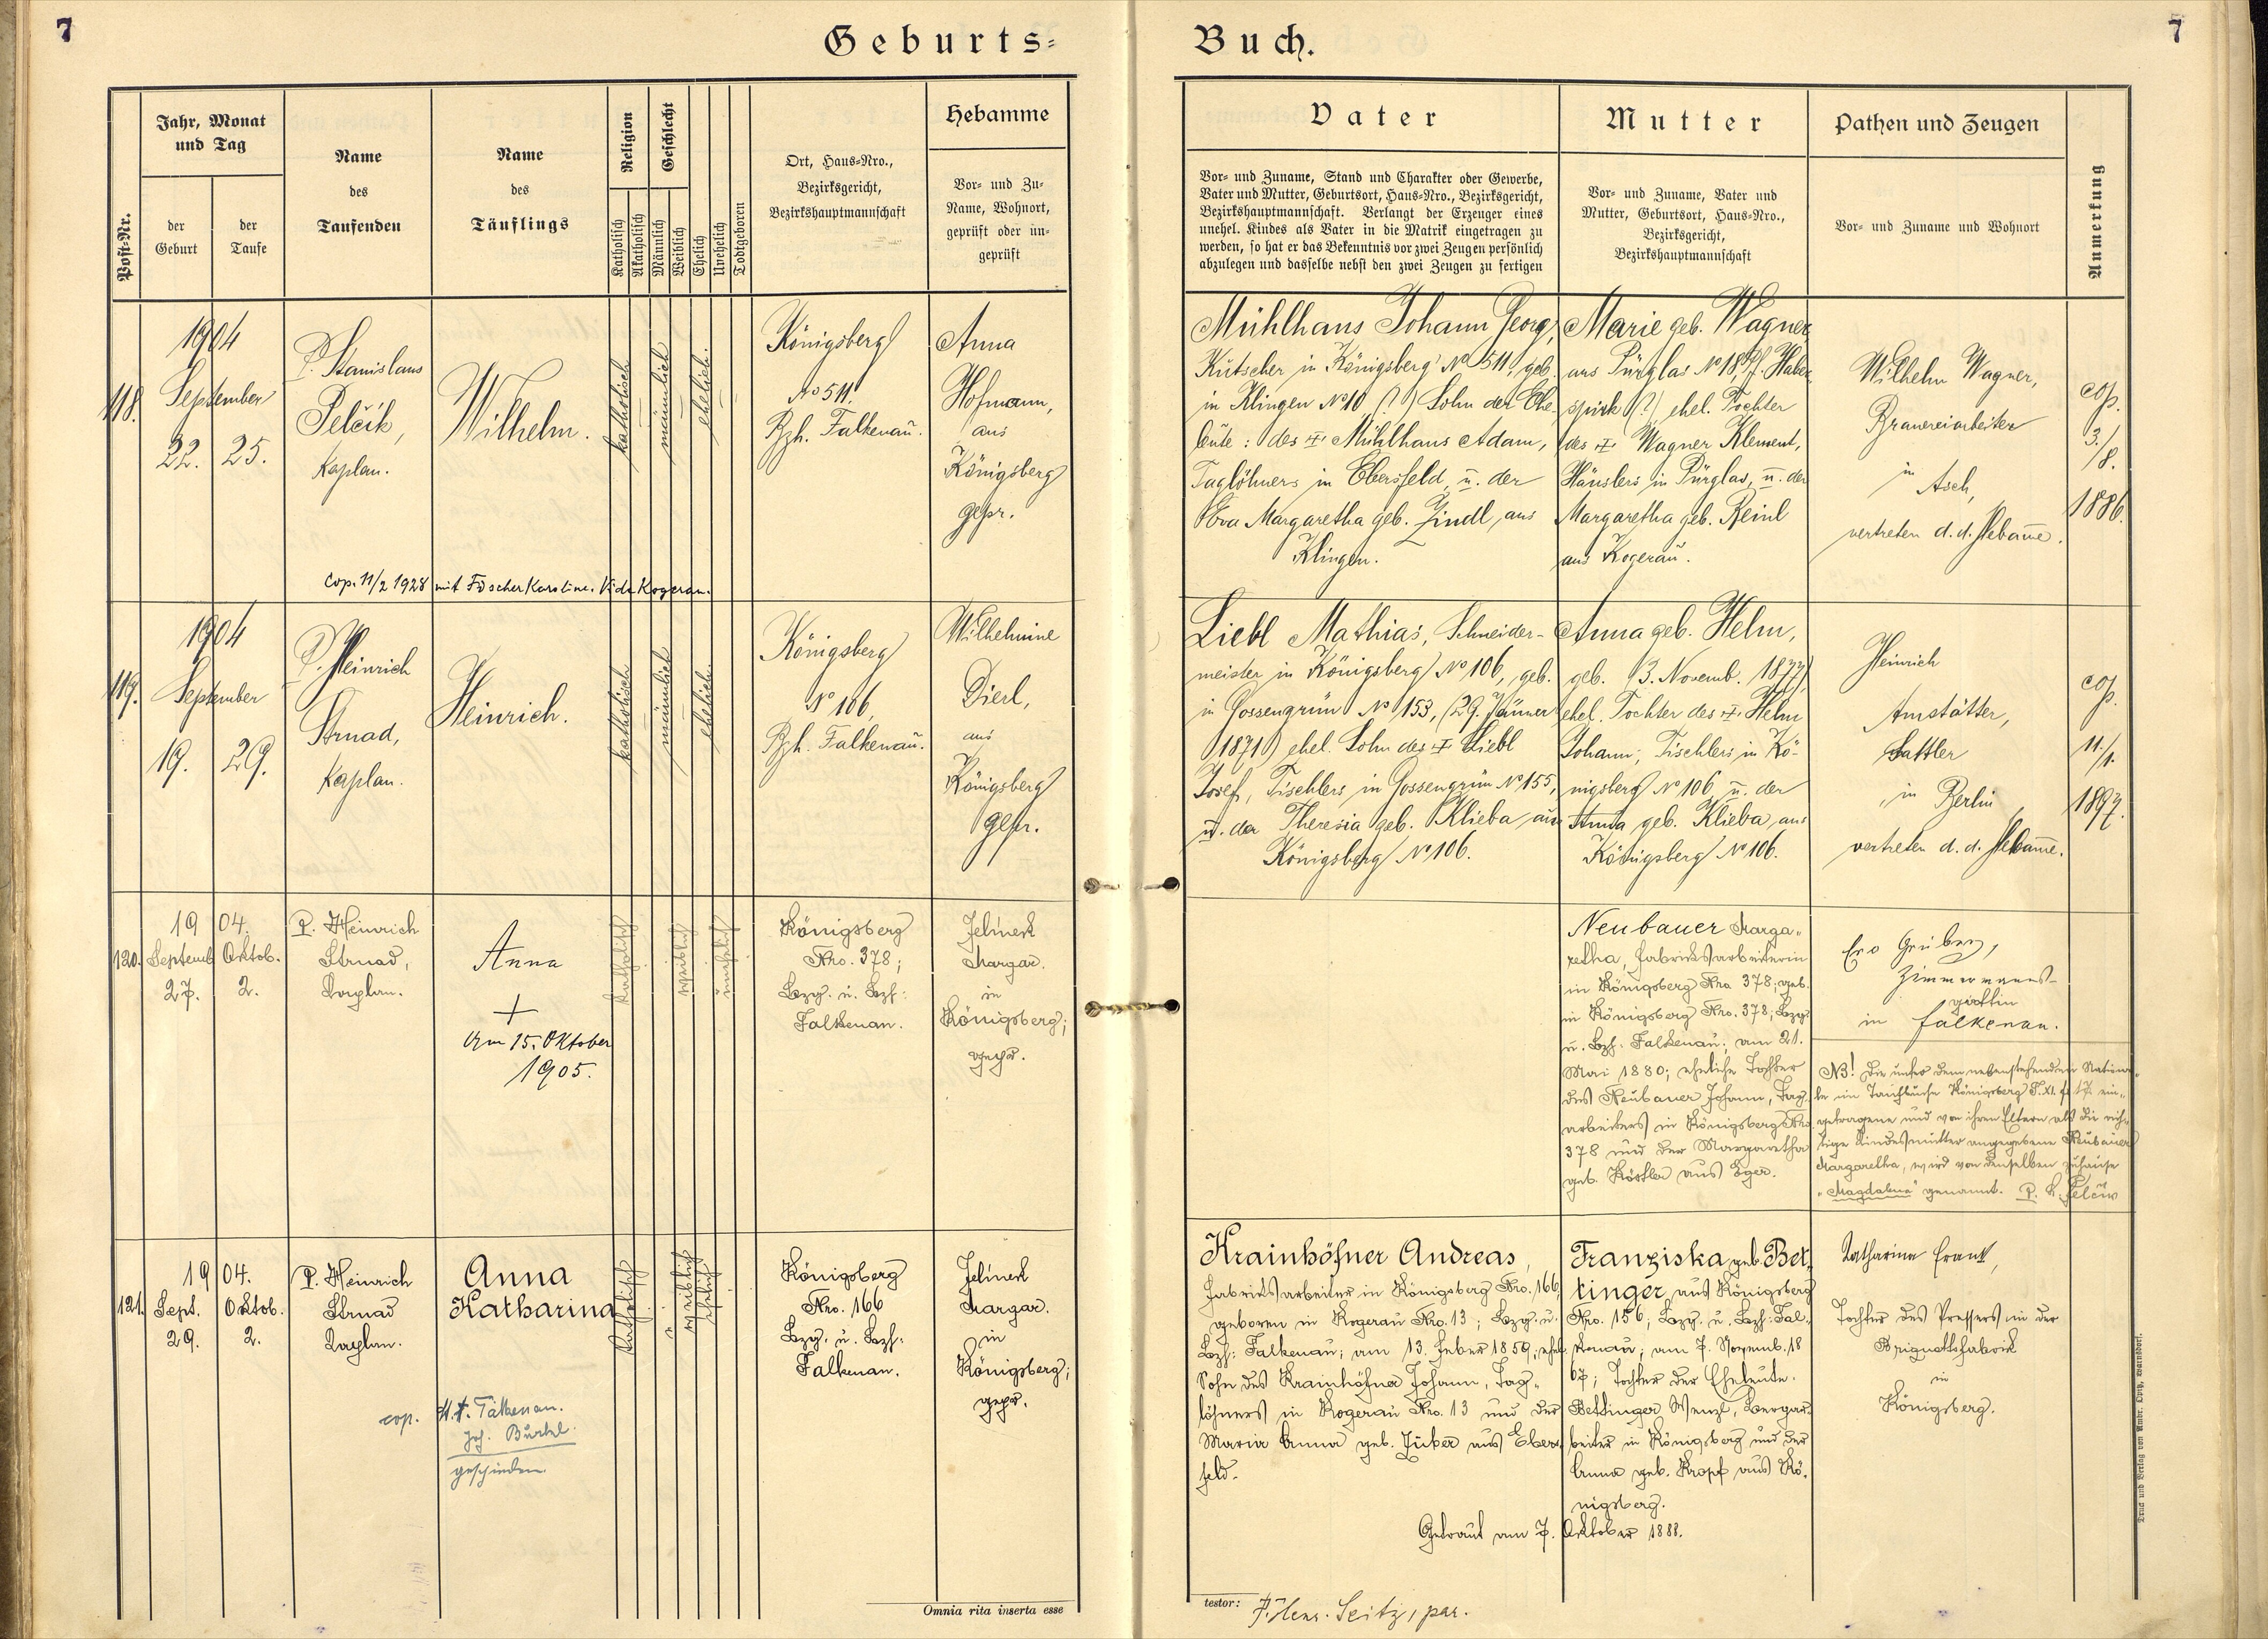 7
Geburts-
Buch.
7
Post-Nr.
Jahr, Monat
und Tag
der
Geburt
der
Taufe
Name
des
Taufenden
Name
des
Täuflings
Religion
Katholisch
Akatholisch
Geschlecht
Männlich
Weiblich
Ehelich
Unehelich
Todtgeboren
Ort, Haus-Nro.,
Bezirksgericht,
Bezirkshauptmannschaft
Hebamme
Vor- und Zu-
Name, Wohnort,
geprüft oder un-
geprüft
Vater
Vor- und Zuname, Stand und Charakter oder Gewerbe,
Vater und Mutter, Geburtsort, Haus-Nro., Bezirksgericht,
Bezirkshauptmannschaft. Verlangt der Erzeuger eines
unehel. Kindes als Vater in die Matrik eingetragen zu
werden, so hat er das Bekenntnis vor zwei Zeugen persönlich
abzulegen und dasselbe nebst den zwei Zeugen zu fertigen
Mutter
Vor- und Zuname, Vater und
Mutter, Geburtsort, Haus-Nro.,
Bezirksgericht,
Bezirkshauptmannschaft
Pathen und Zeugen
Vor- und Zuname und Wohnort
Anmerkung
118.
1904
September
22. 25.
P. Stanislaus
Pelčík,
Kaplan.
Wilhelm.
katholisch
männlich
ehelich.
Königsberg
No 511.
Bzh. Falkenau.
Anna
Hofmann,
aus
Königsberg
gepr.
Mühlhans Johann Georg,
Kutscher in Königsberg No 511, geb.
in Klingen No 10 (?) Sohn der Ehe-
leute: des ✝ Mühlhans Adam,
Taglöhners in Ebersfeld, u. der
Eva Margaretha geb. Zindl, aus
Klingen.
Marie geb. Wagner,
aus Pürglas No 18, Pf. Haber-
spirk (?) ehel. Tochter
des ✝ Wagner Klement,
Häuslers in Pürglas, u. der
Margaretha geb. Reinl
aus Kogerau.
Wilhelm Wagner,
Brauereiarbeiter
in
Asch,
vertreten d. d. Hebamme.
cop.
3./
8.
1886.
cop. 11/2 1928 mit Föscher Karoline. Vide Kogerau.
119.
1904
September
19. 29.
P. Heinrich
Strnad,
Kaplan.
Heinrich.
katholisch
männlich
ehelich.
Königsberg
No 106,
Bzh. Falkenau.
Wilhelmine
Dierl,
aus
Königsberg
gepr.
Liebl Mathias, Schneider-
meister in Königsberg No 106, geb.
in Gossengrün No 153, (29. Jänner
1871) ehel. Sohn des ✝ Liebl
Josef, Tischlers in Gossengrün No 155,
u. der Theresia geb. Klieba, aus
Königsberg No 106.
Anna geb. Helm,
geb. (3. Novemb. 1877)
ehel. Tochter des ✝ Helm
Johann, Tischlers in Kö-
nigsberg No 106, u. der
Anna geb. Klieba, aus
Königsberg No 106.
Heinrich
Amstätter,
Sattler
in Berlin,
vertreten d. d. Hebamme.
cop.
11./
1.
1897.
120.
1904.
Septemb. Oktob.
27. 2.
P. Heinrich
Strnad,
Kaplan.
Anna
+
Am 15. Oktober
1905.
katholisch
weiblich
unehelich
Königsberg
Nro. 378;
Bezg. u. Bezh:
Falkenau.
Jelinek
Margar.
in
Königsberg;
gepr.
Neubauer Marga-
retha, Fabriksarbeiterin
in Königsberg Nro 378; geb.
in Königsberg Nro. 378; Bezg.
u. Bezh. Falkenau; am 21.
Mai 1880; eheliche Tochter
des Neubauer Johann, Tag-
arbeiters in Königsberg Nro
378 und der Margaretha
geb. Köstler aus Eger.
Gruber,
Zimmermanns-
gattin
in Falkenau.
NB! Die unter dem nebenstehenden Nationa-
le im Taufbuche Königsberg T. XI. ein-
getragene und von ihren Eltern als die rich-
tige Kindesmutter angegebene Neubauer
Margaretha, wird von denselben zuhause
"Magdalena" genannt. P. Pelčík
121.
1904.
Sept. Oktob.
29. 2.
P. Heinrich
Strnad
Kaplan.
Anna
Katharina
katholisch
weiblich
ehelich
Königsberg
Nro. 166
Bezg. u. Bezh:
Falkenau.
Jelinek
Margar.
in
Königsberg;
gepr.
cop. Falkenau.
Joh. Bürtel.
geschieden.
Krainhöfner Andreas,
Fabriksarbeiter in Königsberg Nro. 166,
geboren in Kogerau Nro. 13; Bezg. u.
Bezh: Falkenau; am 13. Feber 1859; ehel.
Sohn des Krainhöfner Johann, Tag-
löhners in Kogerau Nro. 13 und der
Maria Anna geb. Zuber aus Ebers-
feld.
Franziska geb. Bet-
tinger aus Königsberg
Nro. 156; Bezg. u. Bezh: Fal-
kenau; am 7. Novemb. 18
67; Tochter der Eheleute.
Bettinger Wenzl, Bergar-
beiter in Königsberg und der
Anna geb. Kropf aus Kö-
nigsberg.
Getraut am 7. Oktober 1888.
Katharina Frank,
Tochter des Pressers in der
Briquettsfabrik
in
Königsberg.
Omnia rita inserta esse
testor: P. Henr. Seitz, par.
Druck und Verlag von Ambr. Opitz, Warnsdorf.